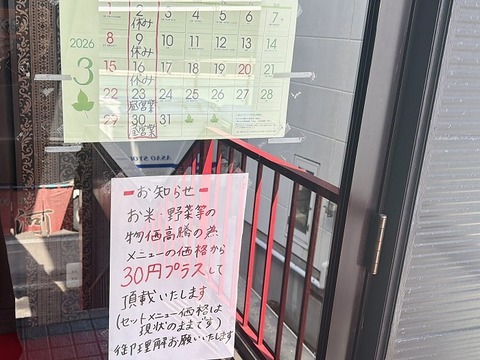 1 2 3 4 5 6 7
休み
2026
3
8 9 10 11 12 13 14
休み
15 16 17 18 19 20 21
休み
22 23 24 25 26 27 28
昼営業
29 30 31
昼営業
お知らせ
お米・野菜等の
物価高騰の為
メニューの価格から
30円プラスして
頂載いたします
(セットメニュー価格は
現状のままです)
御理解お願いいたします